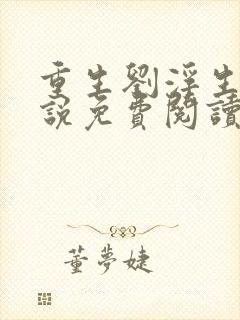 重生劉淫生
說免費閱讀
董夢婕